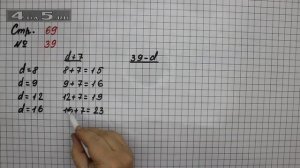 Стр. 69
№ 39
d+7 39-d
d=8 8+7=15
d=9 9+7=16
d=12 12+7=19
d=16 16+7=23